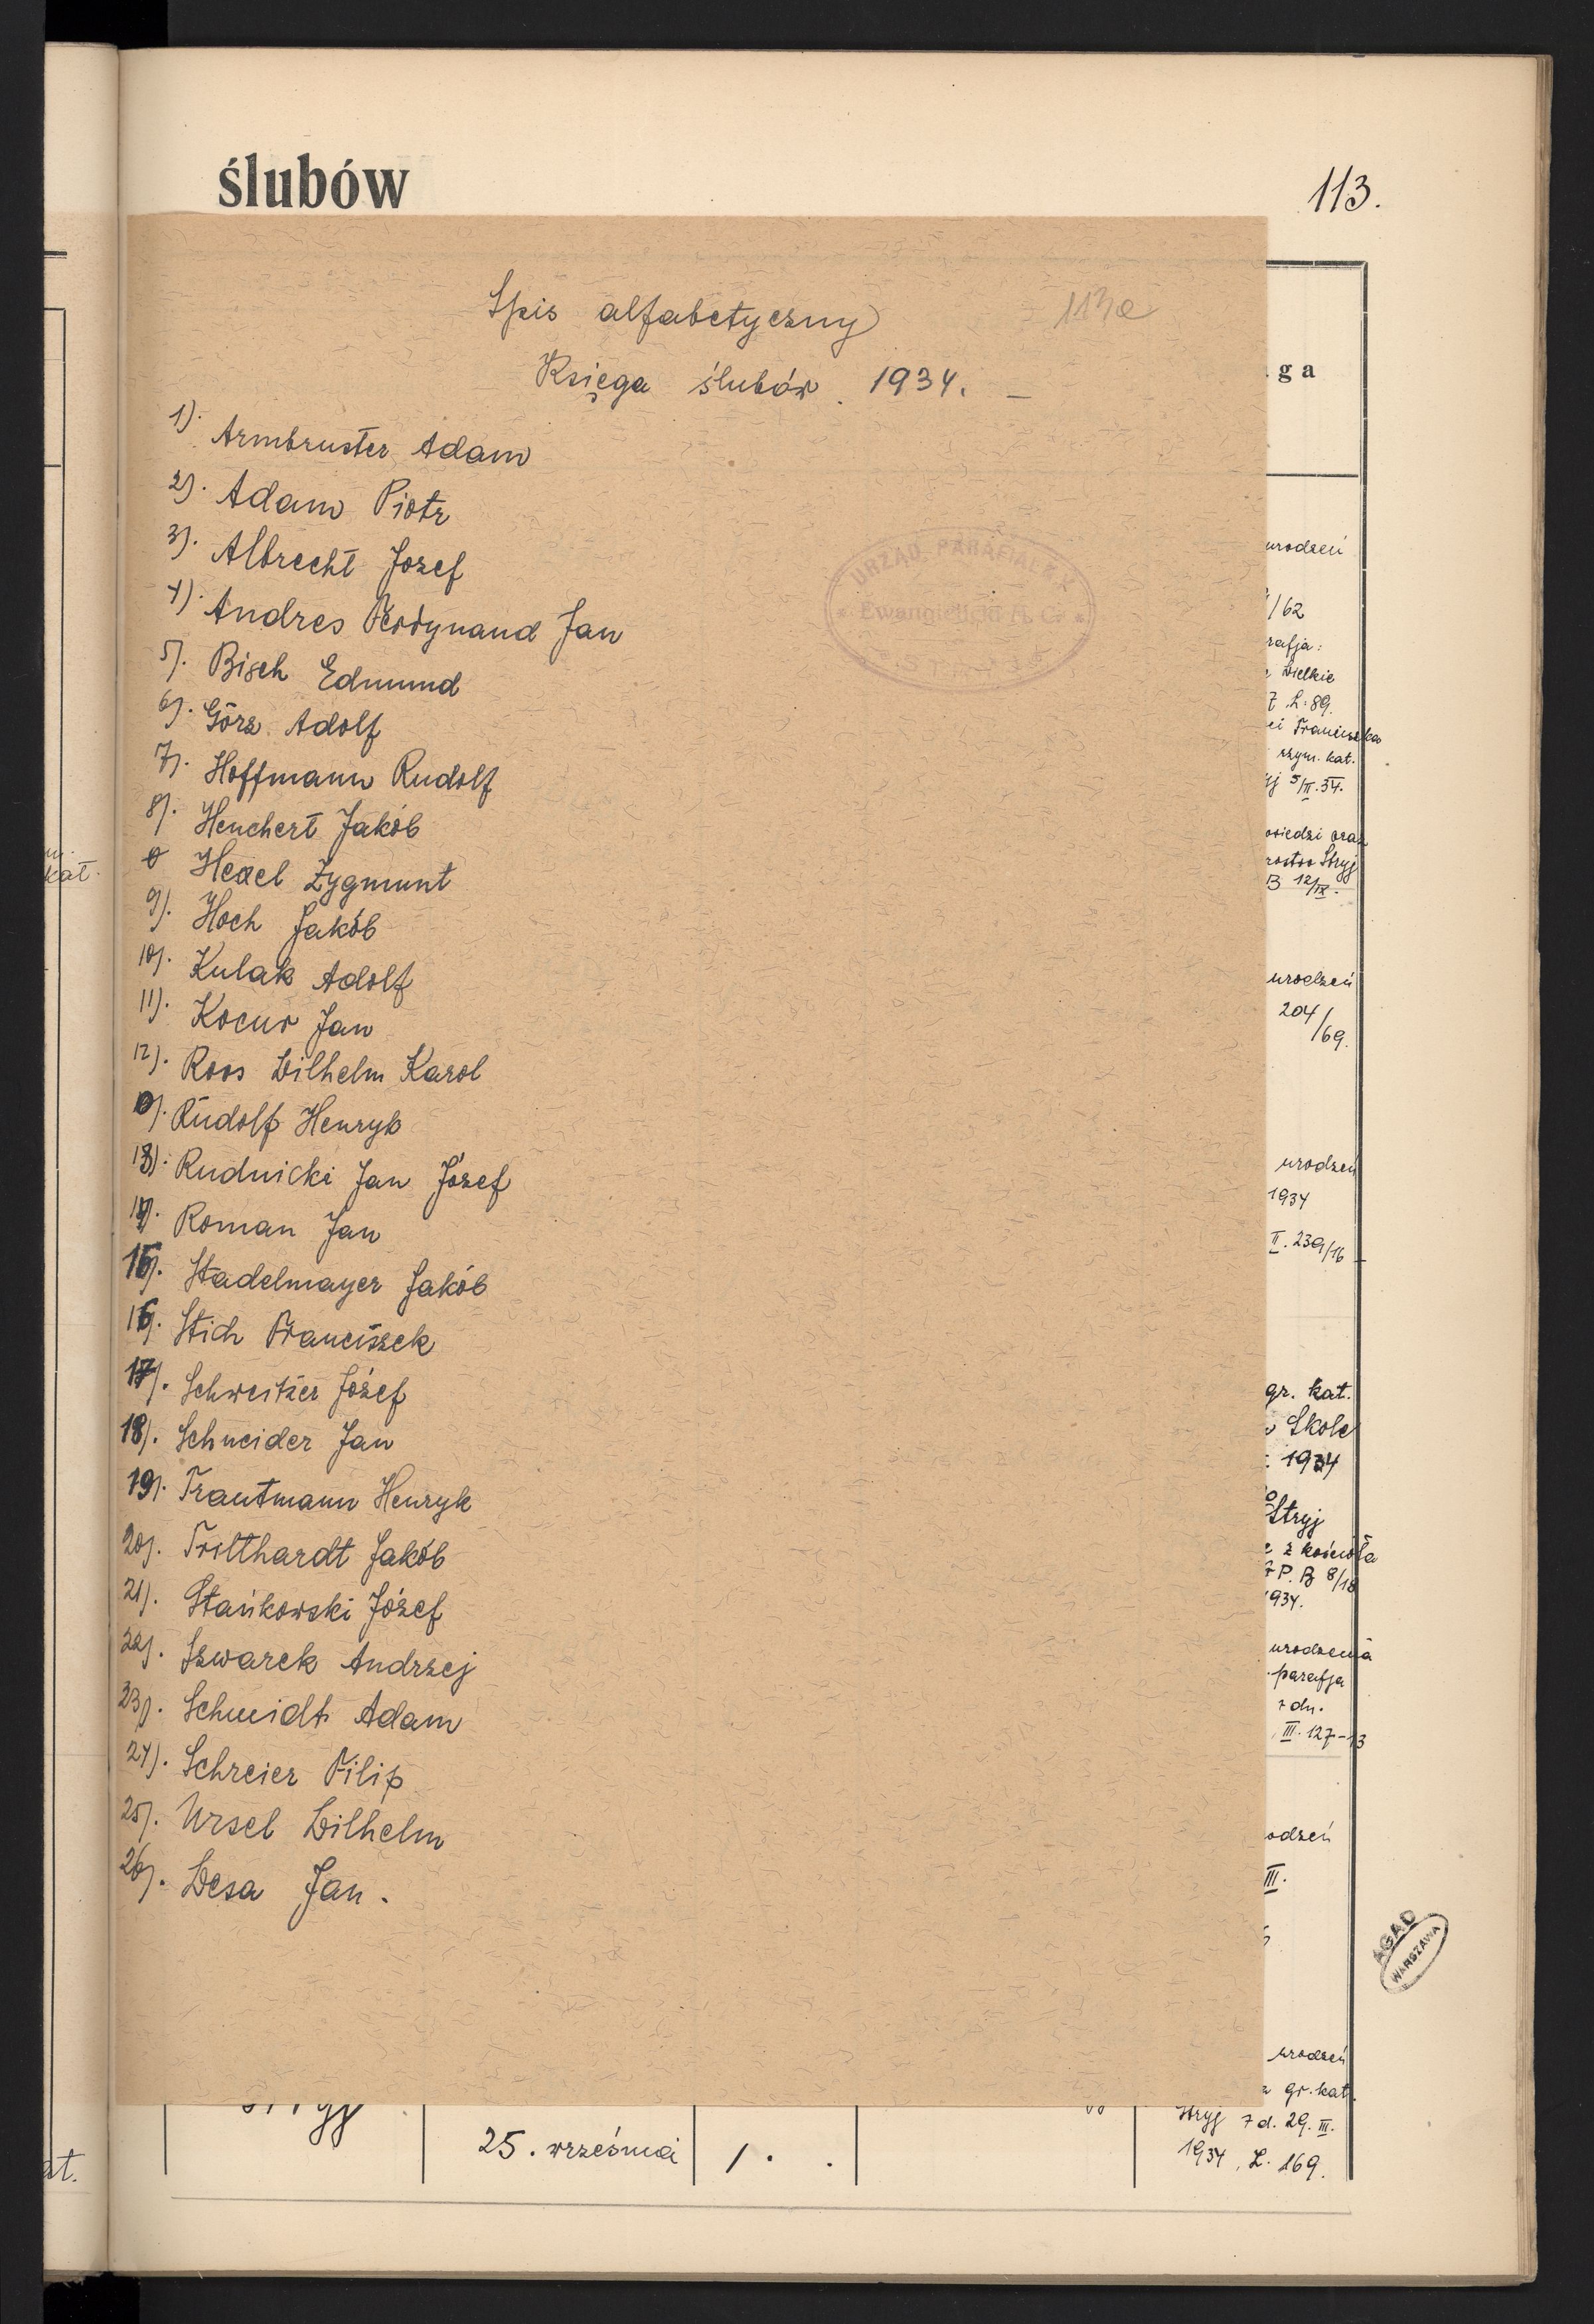 ślubów
113.
Spis alfabetyczny
113a
Księga ślubów 1934. –
1). Armbruster Adam
2). Adam Piotr
3). Albrecht Jozef
4). Andres Ferdynand Jan
5). Bisch Edmund
6). Görz Adolf
7). Hoffmann Rudolf
8). Henchert Jakób
Hexel Zygmunt
9). Hoch Jakób
10). Kulak Adolf
11). Kocur Jan
12). Roos Wilhelm Karol
Rudolf Henryk
13). Rudnicki Jan Józef
14). Roman Jan
15). Stadelmayer Jakób
16). Stich Franciszek
17). Schweitzer Józef
18). Schneider Jan
19). Trautmann Henryk
20). Tritthardt Jakób
21). Stańkowski Józef
22). Szwarek Andrzej
23). Schmidt Adam
24). Schreier Filip
25). Ursel Wilhelm
26). Wesa Jan.
URZĄD PARAFIALNY
Ewangielicki A. C.
ga
urodzeń
/62
rafja:
Wielkie
L: 89.
Franciszka
rzym. kat.
5/III.34.
oraz
Stryj
B 12/IX.
kat.
urodzeń
204/69.
urodzeń
1934
II. 239/16
gr. kat.
Skole
1934
Stryj
z kościoła
P. B 8/18
934.
urodzenia
parafja
z dn.
III. 127-13
odzeń
III.
AGAD
WARSZAWA
urodzeń
gr. kat.
Stryj z d. 29. III.
1934, L. 169.
25. wrześnai
1.